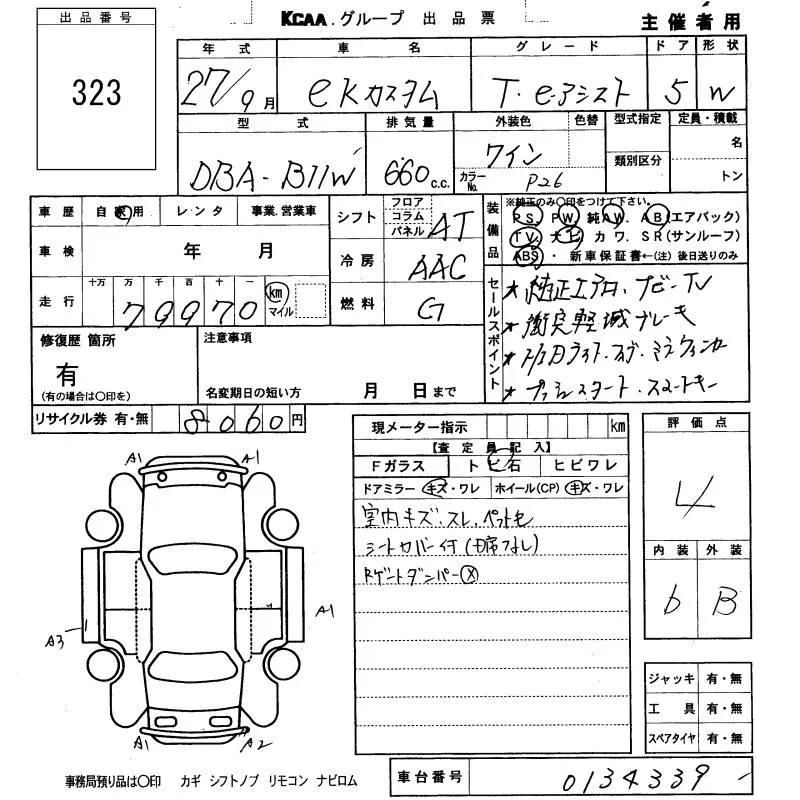 出品番号
323
KCAA.グループ 出品票
主催者用
年式 車名 グレード ドア 形状
27/9月 eKカスタム T・e-アシスト 5 W
型式 排気量 外装色 色替 型式指定 定員・積載
DBA-B11W 660c.c. ワイン カラーNo. P26 類別区分 名 トン
車歴 自家用 レンタ 事業.営業車
車検 年 月
走行 十万 万 千 百 十 一
79970 km マイル
シフト フロア コラム パネル AT
冷房 AAC
燃料 G
装備品 ※純正のみ○印をつけて下さい。
PS. PW 純AW. AB(エアバック)
TV. カワ. SR(サンルーフ)
ABS・新車保証書←(注)後日送りのみ
セールスポイント
★純正エアロ.ナビ-TV
★衝突軽減ブレーキ
★プッシュスタート.スマートキー
修復歴 箇所
有
(有の場合は○印を)
注意事項
名変期日の短い方 月 日まで
リサイクル券 有・無 8060円
現メーター指示 km
【査定員記入】
Fガラス トビ石 ヒビワレ
ドアミラー キズ・ワレ ホイール(CP) キズ・ワレ
室内キズ.スレ.ペット毛
Rゲートダンパー Ⓧ
評価点
4
内装 外装
b B
A1 A1
A3 A1
A1 A2
ジャッキ 有・無
工具 有・無
スペアタイヤ 有・無
事務局預り品は○印 カギ シフトノブ リモコン ナビロム
車台番号 0134339